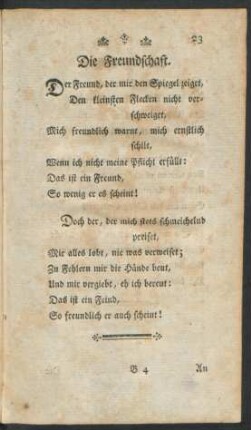 23
Die Freundschaft.
Der Freund, der mir den Spiegel zeiget,
Den kleinsten Flecken nicht ver-
schweiget,
Mich freundlich warnt, mich ernstlich
schilt,
Wenn ich nicht meine Pflicht erfüllt:
Das ist ein Freund,
So wenig er es scheint!
Doch der, der mich stets schmeichelnd
preiset,
Mir alles lobt, nie was verweiset;
Zu Fehlern mir die Hände beut,
Und mir vergiebt, eh ich bereut:
Das ist ein Feind,
So freundlich er auch scheint!
B 4
An